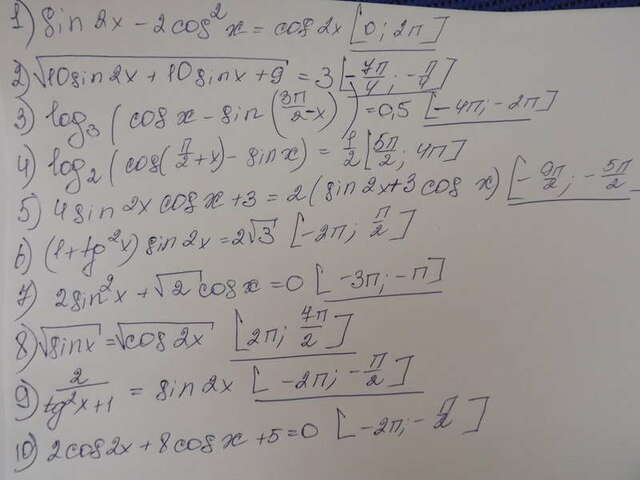 1) sin 2x - 2cos²x = cos 2x [0; 2π]
2) √(10sin2x + 10sinx + 9) = 3 [-7π/4; -π/4]
3) log₃(cosx - sin(3π/2 - x)) = 0,5 [-4π; -2π]
4) log₂(cos(π/2 + x) - sinx) = 1/2 [5π/2; 4π]
5) 4sin2xcosx + 3 = 2(sin2x + 3cosx) [-9π/2; -5π/2]
6) (1 + tg²x) sin2x = 2√3 [-2π; π/2]
7) 2sin²x + √2 cosx = 0 [-3π; -π]
8) √sinx = √cos2x [2π; 7π/2]
9) 2/(tg²x + 1) = sin2x [-2π; -π/2]
10) 2cos2x + 8cosx + 5 = 0 [-2π; -π/2]